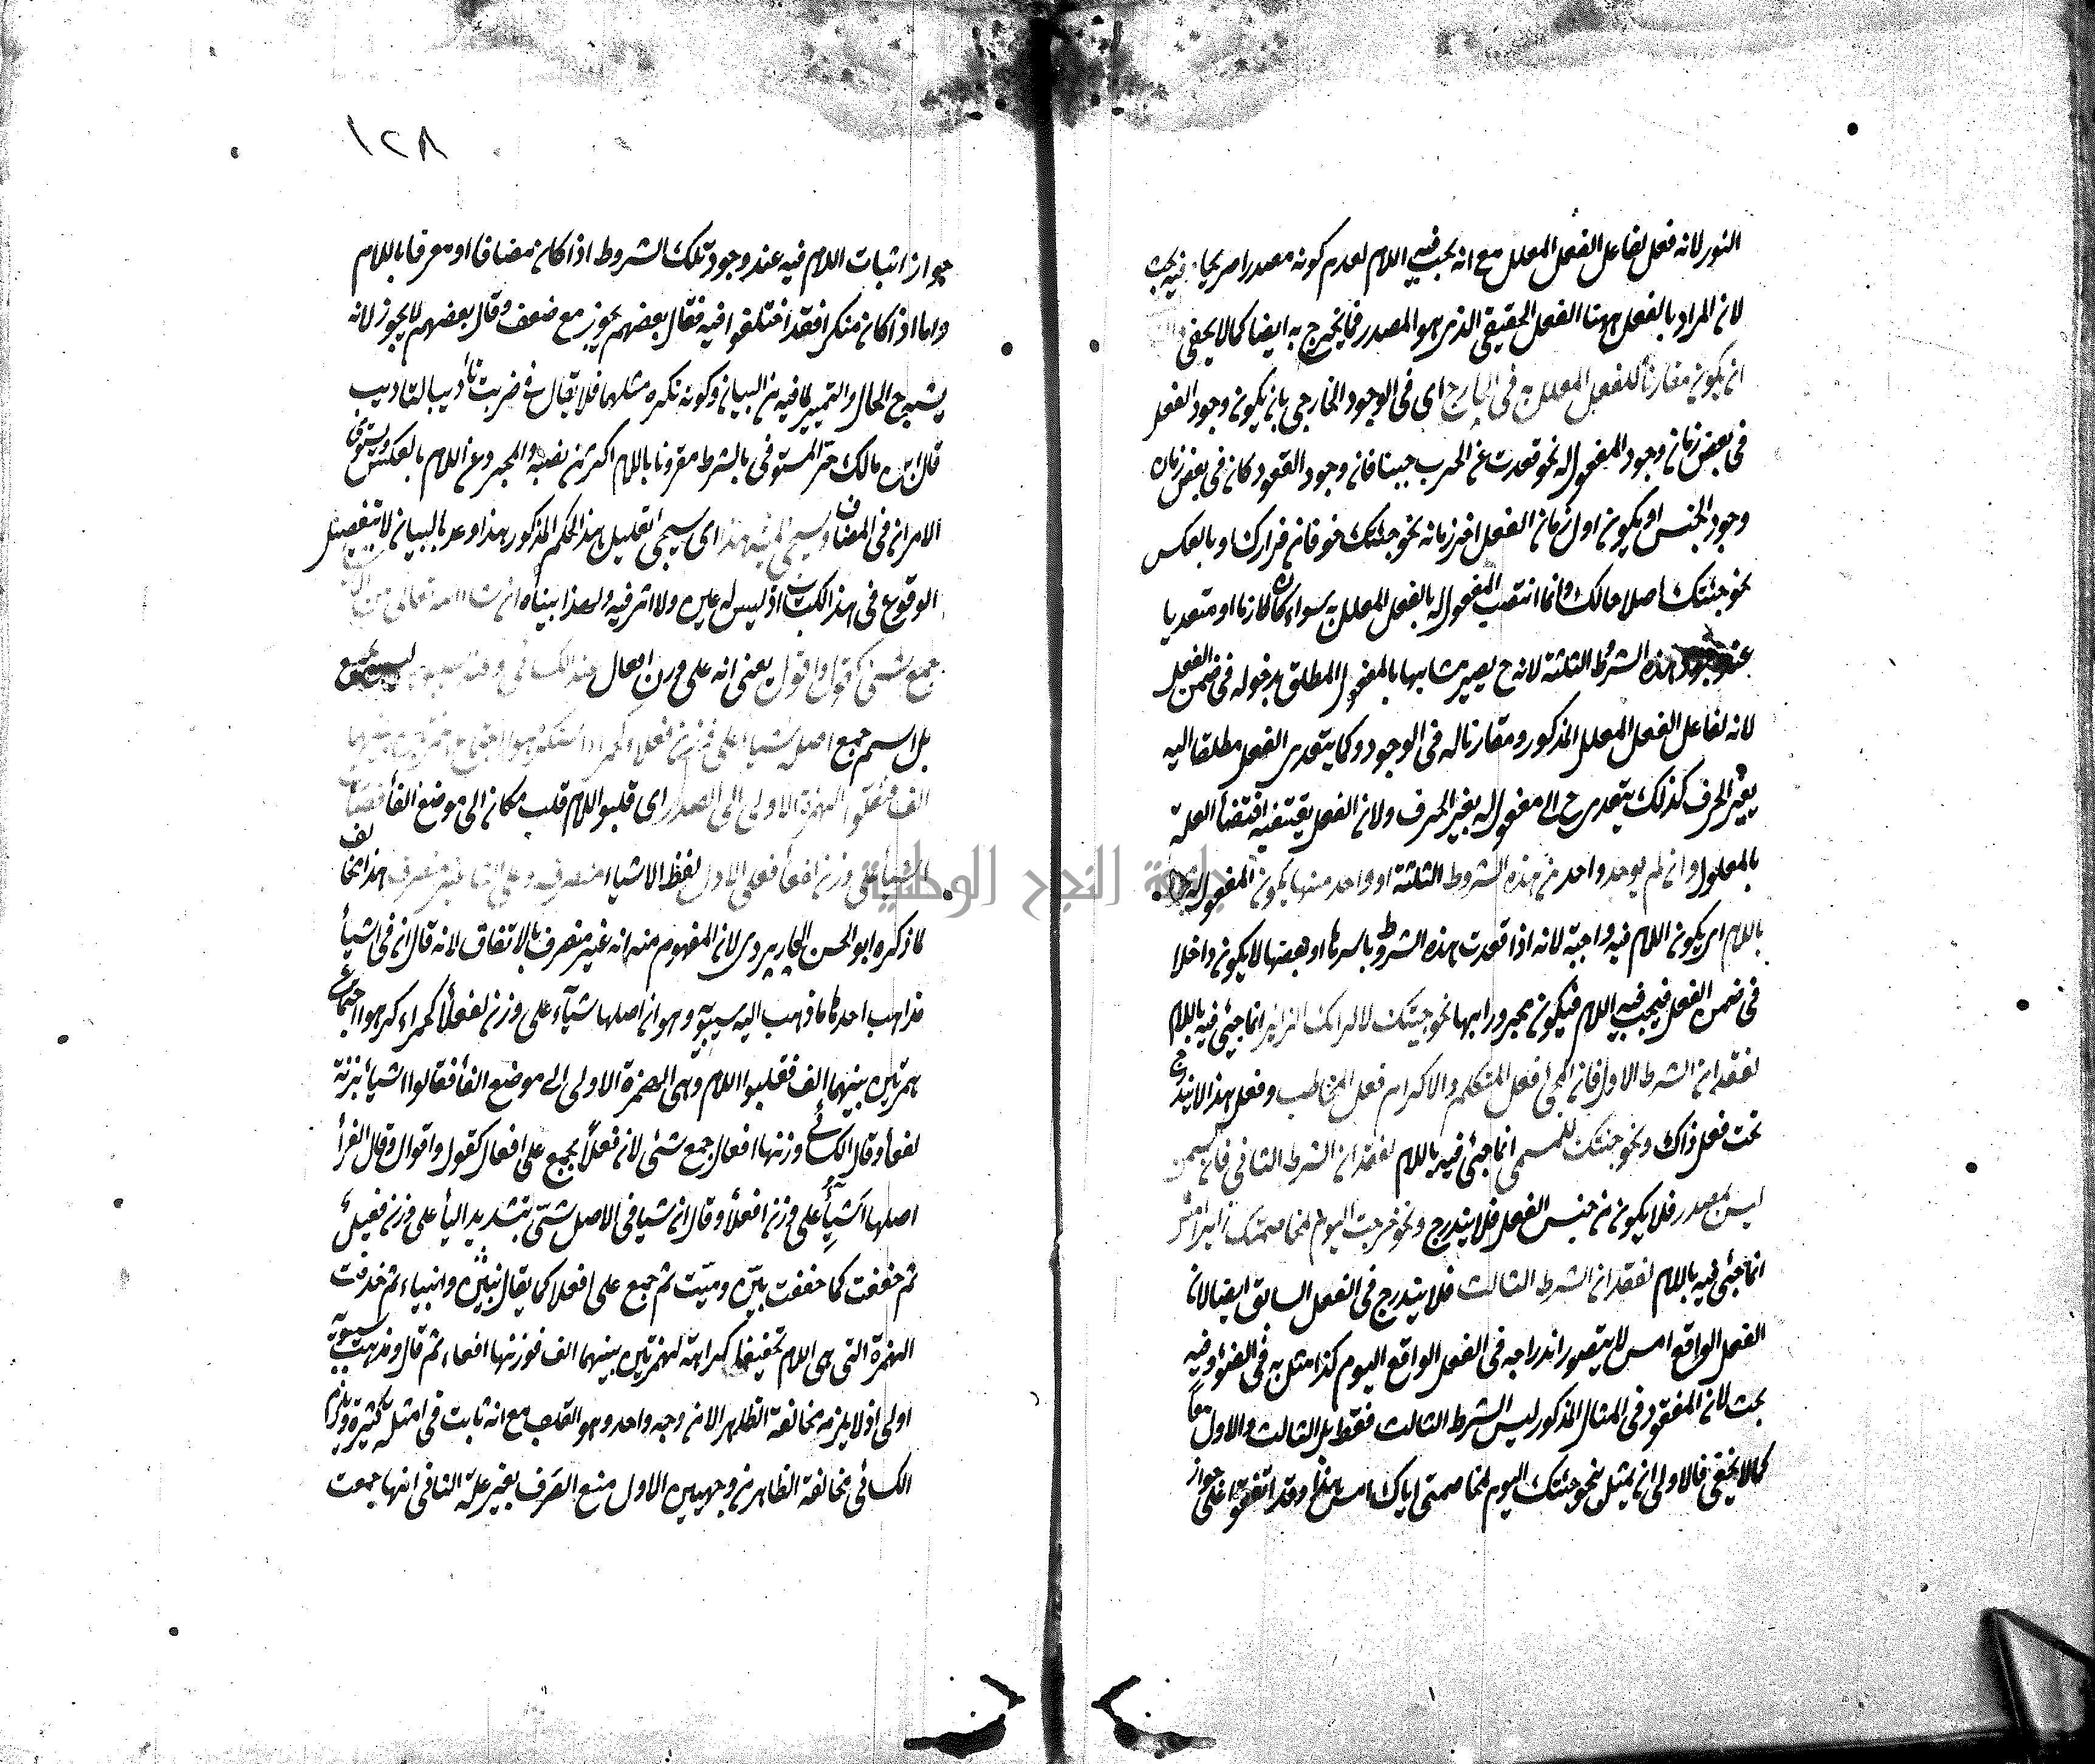 النور لانه فعل لفاعل الفعل المعلل مع انه يجب فيه اللام لعدم كونه مصدرا صريحا فيه بحث
لان المراد بالفعل ههنا الفعل الحقيقي الذي هو المصدر فما يخرج به ايضا كما لا يخفى
ان يكون مقارنا للفعل المعلل في الخارج اي في الوجود الخارجي بان يكون وجود الفعل
في بعض زمان وجود المفعول له نحو قعدت عن الحرب جبنا فان وجود القعود كان في بعض زمان
وجود الجبن او يكون اول زمان الفعل اخر زمانه نحو جئتك خوفا من فرارك او بالعكس
نحو جئتك اصلاحا لك وانما انتصب المفعول له بالفعل المعلل به سواء كان لازما او متعديا
عند وجود هذه الشرئط الثلثة لانه ح يصير مشابها بالمفعول المطلق بدخوله في ضمن الفعل
لانه لفاعل الفعل المعلل المذكور ومقارنا له في الوجود وكما يتعدى الفعل مطلقا اليه
بغير الحرف كذلك يتعدى ح الى مفعول له بغير الحرف ولان الفعل يقتضيه اقتضأ العلة
بالمعلول وان لم يوجد واحد من هذه الشروط الثلثة او واحد منها يكون المفعول له
باللام اي يكون اللام فيه واجبة لانه اذا فقدت هذه الشروط باسرها او بعضها لا يكون داخلا
في ضمن الفعل فيجب فيه اللام فيكون مجرورا بها نحو جئتك لاكرامك الزاير انما جيئ فيه باللام
لفقدان الشرط الاول فان المجئ فعل المتكلم والاكرام فعل المخاطب وفعل هذا لا يندرج
تحت فعل ذاك ونحو جئتك للسمن انما جيئ فيه باللام لفقدان الشرط الثاني فان السمن
ليس بمصدر فلا يكون من جنس الفعل فلا يندرج ونحو خرجت اليوم لمخاصمتك زيدا امس
انما جيئ فيه باللام لفقدان الشرط الثالث فلا يندرج في الفعل السابق ايضا لان
الفعل الواقع امس لا يتصور اندراجه في الفعل الواقع اليوم كذا مثل به في الضوء وفيه
بحث لان المفقود في المثال المذكور ليس الشرط الثالث فقط بل الثالث والاول معا
كما لا يخفى فالاولى ان يمثل بنحو جئتك اليوم لمخاصمتي اياك امس هذا وقد اتفقوا على جواز
١٢٨
جواز اثبات اللام فيه عند وجود تلك الشروط اذا كان مضافا او معرفا باللام
واما اذا كان منكرا فقد اختلفوا فيه فقال بعضهم يجوز مع ضعف وقال بعضهم لا يجوز لانه
يشبه الحال والتمييز لما فيه من البيان وكونه نكرة مثلهما فلا يقال في ضربت تأديبا لتاديب
قال ابن مالك جر المستوفي بالشرط مقرونا باللام اكثر من نصبه والمجرد عن اللام بالعكس ويستوي
الامران في المضاف وسيجئ هذا اي سيجئ تعليل هذا الحكم المذكور هذا وعد بالبيان لا بتفصيل
الوقوع في هذا الكتاب اذ ليس له عين ولا اثر فيه ولهذا بيناه ان شاء الله تعالى
جمع شئ كقول واقوال يعني انه على وزن افعال عند الكسائي وعند سيبويه ليس بجمع
بل اسم جمع اصله شيئاء على وزن فعلاء كحمراء استكرهوا اجتماع همزتين بينهما
الف فنقلوا الهمزة الاولى الى الصدر اي قلبوا اللام قلب مكان الى موضع الفأ فصار
اشياء على وزن لفعأ فعلى الاول لفظ الاشياء منصرف وعلى الثاني غير منصرف هذا مخالف
لما ذكره ابو الحسن الجاربردي لان المفهوم منه انه غير منصرف بالاتفاق لانه قال ان في اشيأ
مذاهب احدها ما ذهب اليه سيبويه وهو ان اصلها شيآء على وزن فعلأ كحمراء كرهوا اجتماع
همزتين بينهما الف فقلبوا اللام وهي الهمزة الاولى الى موضع الفأ فقالوا اشيأ بزنة
لفعأ وقال الكسائي وزنها افعال جمع شئ لان فعلا يجمع على افعال كقول واقوال وقال الفرأ
اصلها اشيأ على وزن افعلأ وقال ان شيأ في الاصل شيّئ بتشديد اليأ على وزن فعيل
ثم خففت كما خففت بيّن وميّت ثم جمع على افعلا كما يقال نبيّ وانبياء ثم حذفت
الهمزة التي هي اللام تخفيفا كراهة لهمزتين بينهما الف فوزنها افعاء ثم قال ومذهب سيبويه
اولى اذ لا يلزمه مخالفة الظاهر الا من وجه واحد وهو القلب مع انه ثابت في امثلة كثيرة ويلزم
الكسائي مخالفة الظاهر من وجهين الاول منع الصرف بغير علة الثاني انها جمعت
جامعة النجاح الوطنية